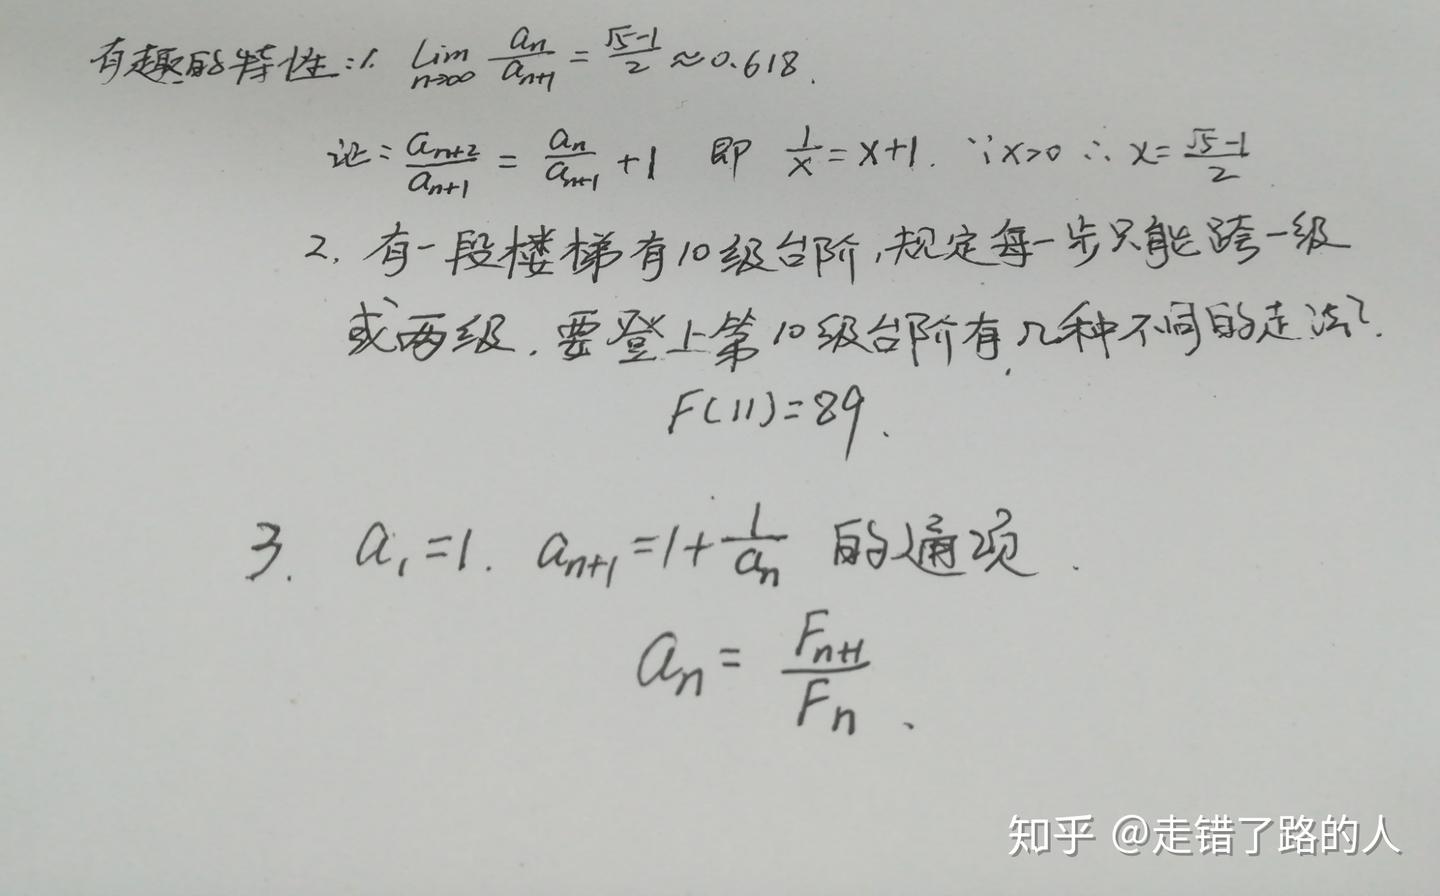 有趣的特性:1. lim n→∞ aₙ/aₙ₊₁ = (√5-1)/2 ≈ 0.618.
证: aₙ₊₂/aₙ₊₁ = aₙ/aₙ₊₁ + 1 即 1/x = x+1. ∵x>0 ∴ x = (√5-1)/2
2. 有一段楼梯有10级台阶,规定每一步只能跨一级
或两级.要登上第10级台阶有几种不同的走法?
F(11)=89.
3. a₁=1. aₙ₊₁=1+1/aₙ 的通项.
aₙ = Fₙ₊₁/Fₙ.
知乎 @走错了路的人